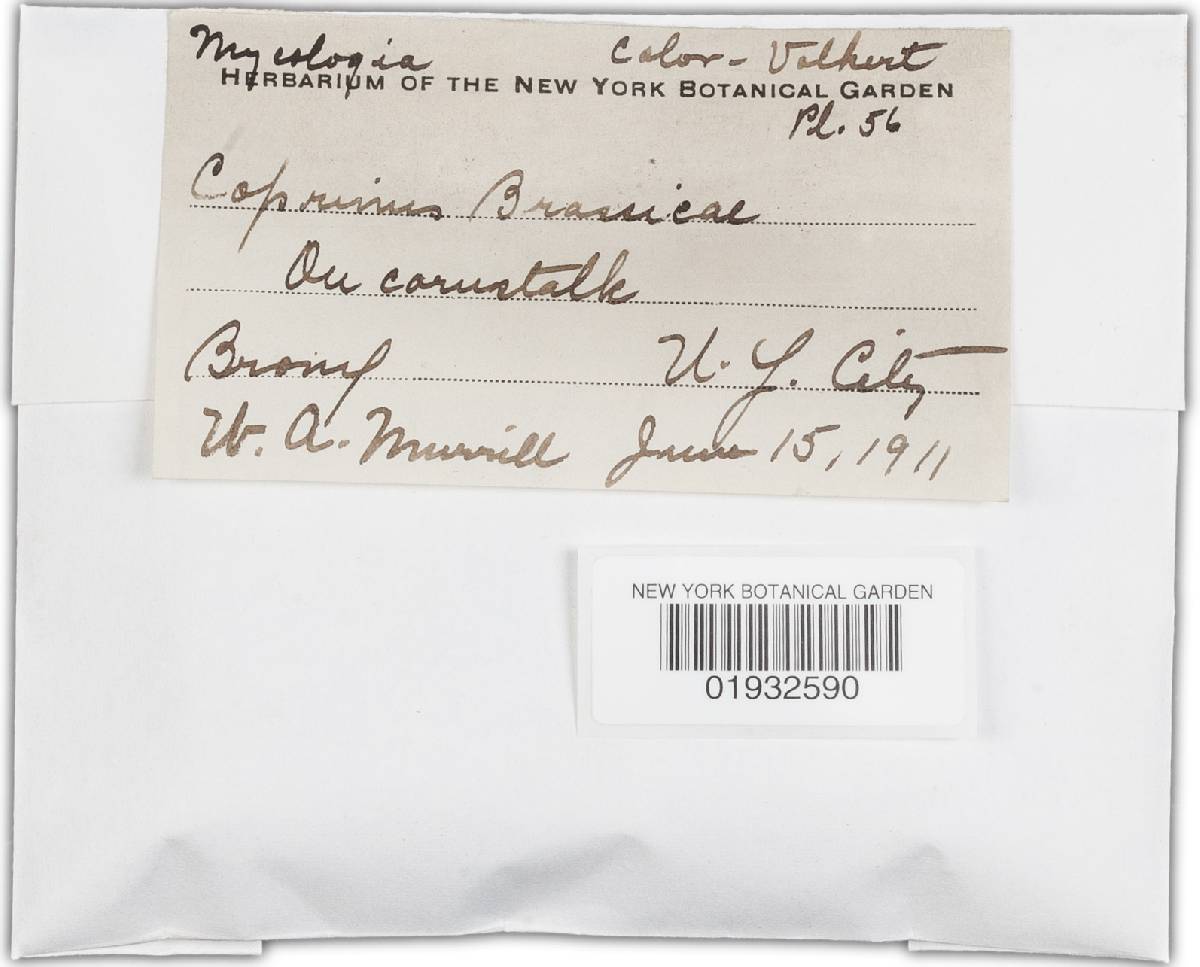 Mycologia Color - Volkert
HERBARIUM OF THE NEW YORK BOTANICAL GARDEN
Pl. 56
Coprinus Brassicae
On cornstalk
Bronx N. Y. City
W. A. Murrill June 15, 1911
NEW YORK BOTANICAL GARDEN
01932590